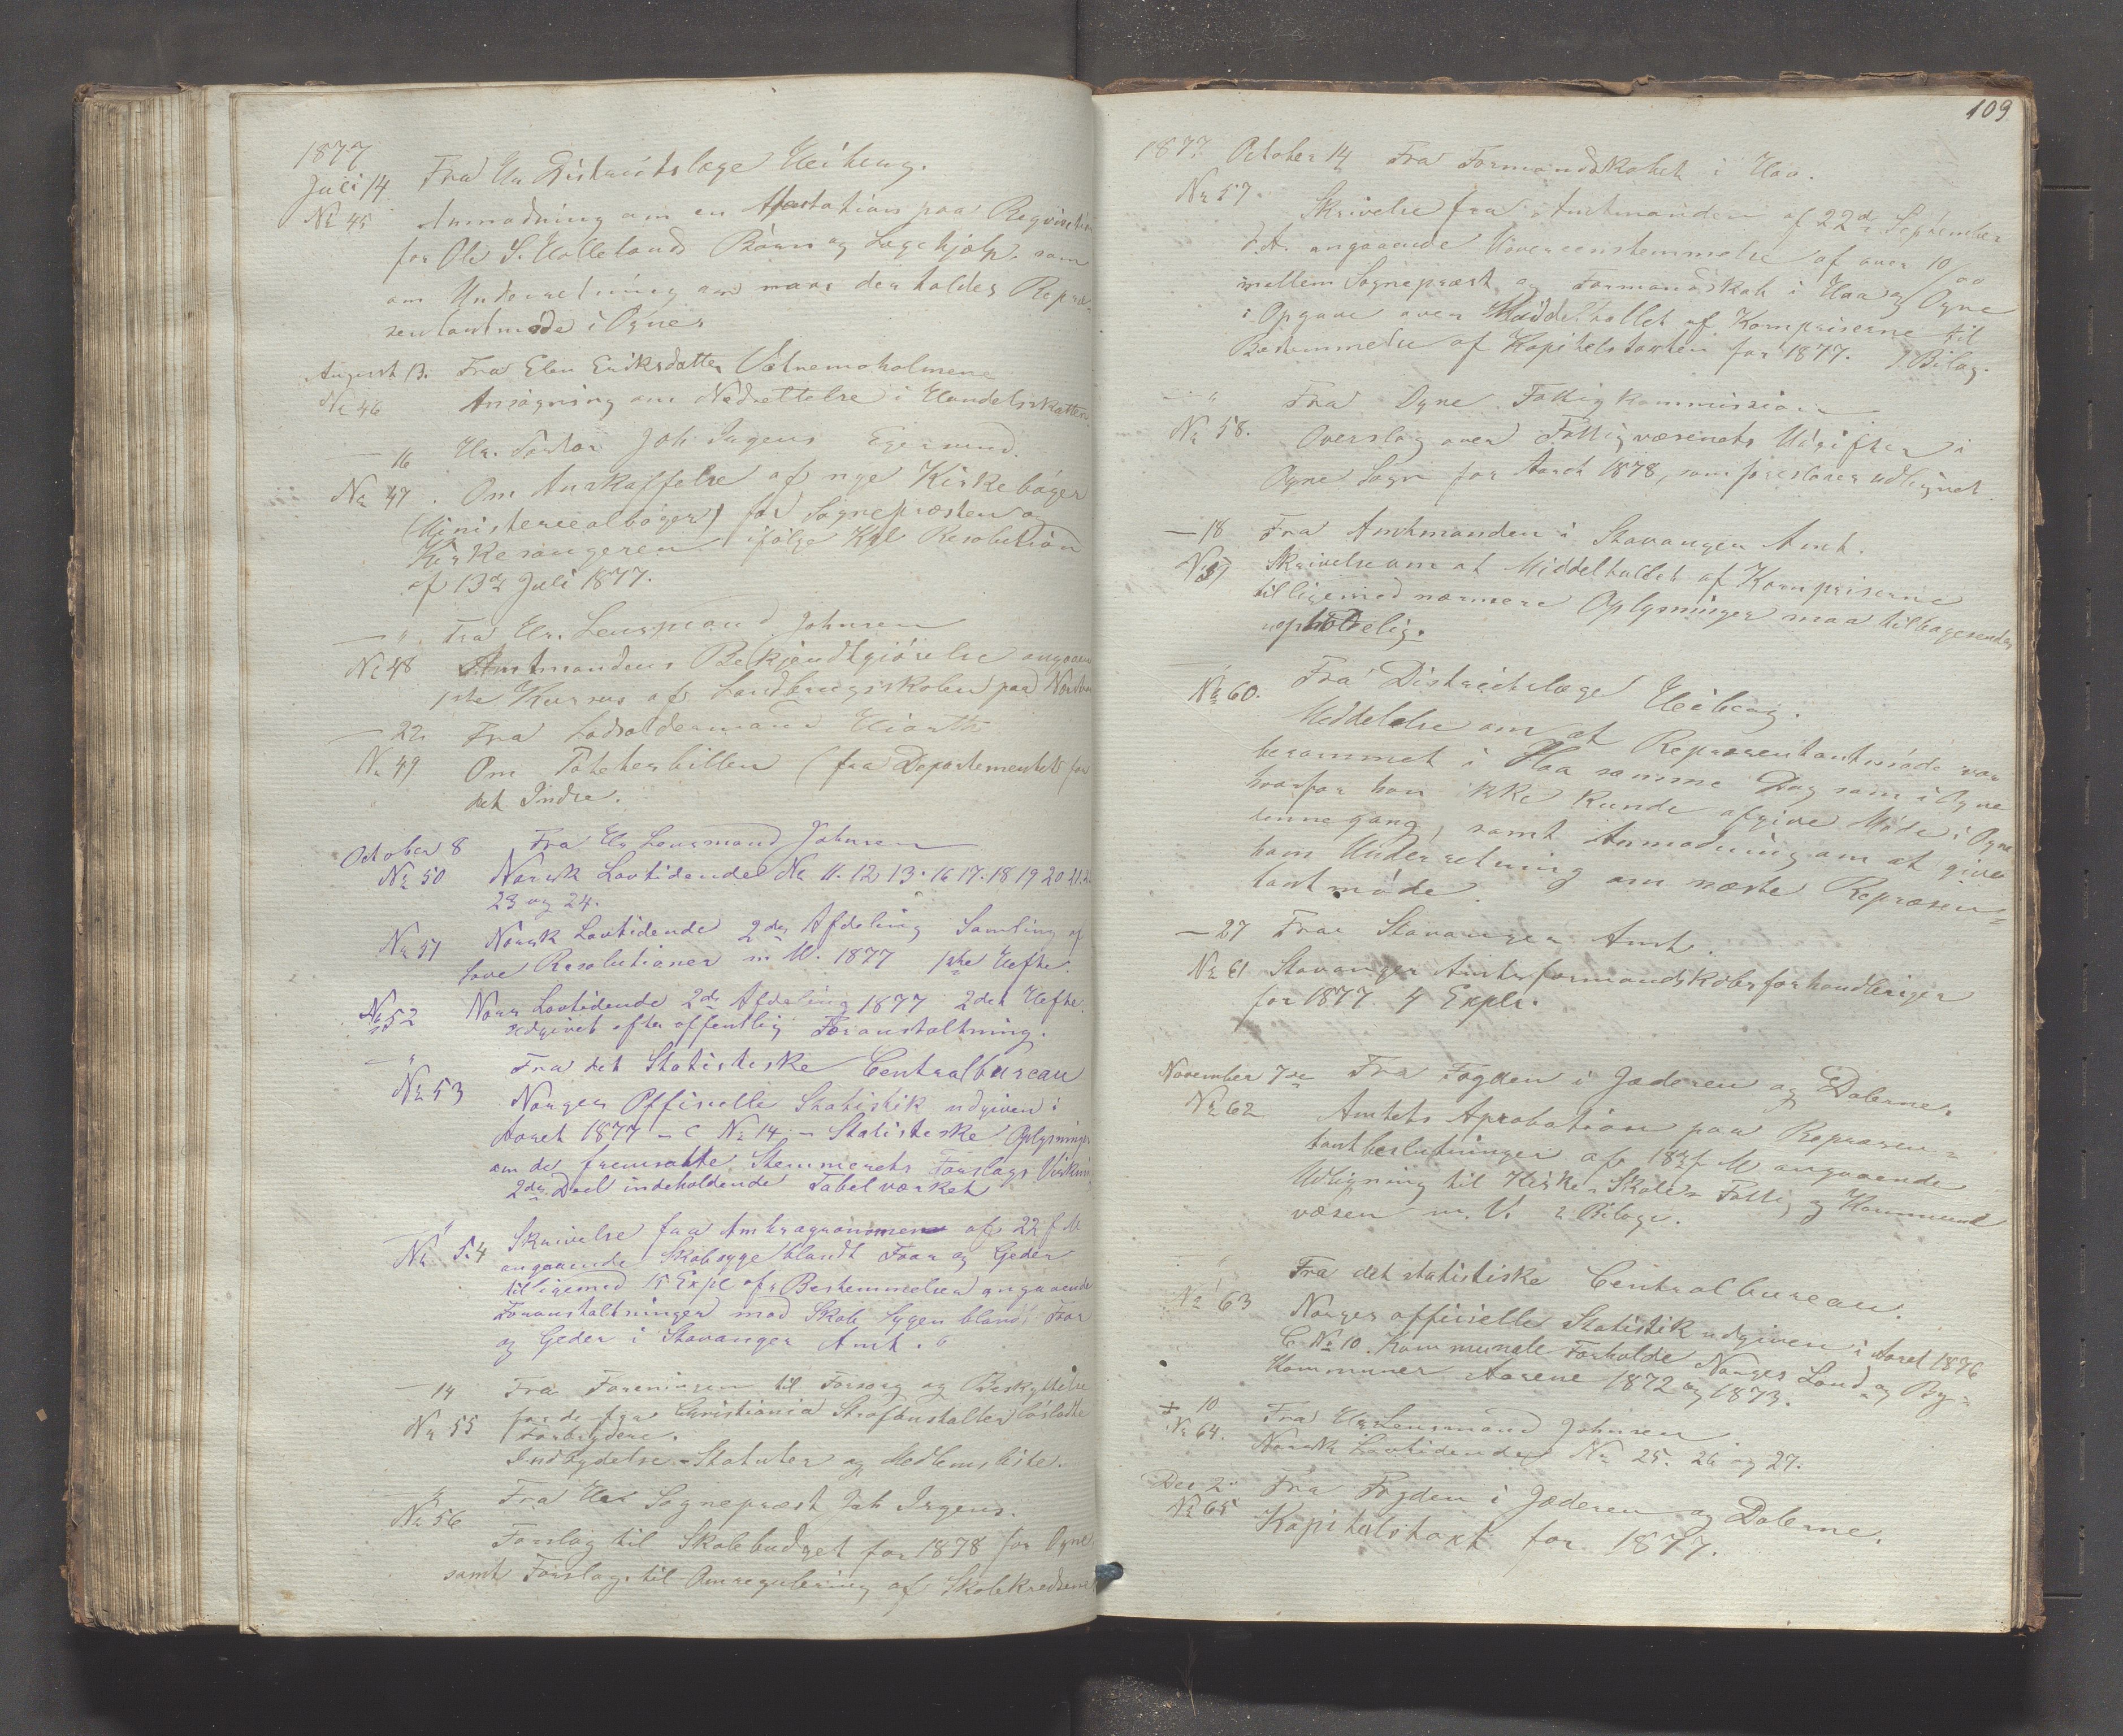 1877
Juli 14 Fra Hr Distriktslæge Heiberg.
No 45 Anmodning om en Attestation paa Reqvisition
for Ole S. Hollelands Børns Lægehjælp, samt
om Underretning om naar der holdes Repræ-
sentantmøde i Ogne.
August 13. Fra Elen Eriksdatter
No 46 Ansøgning om Nedsettelse i Handelsskatten.
— 16 Hr. Pastor Joh Irgens Egersund.
No 47. Om Anskaffelse af nye Kirkebøger
(Ministerealbøger) for Sognepræsten og
Kirkesangeren ifølge Kgl Resolution
af 13de Juli 1877.
— " Fra Hr. Lensmand Johnsen
No 48 Amtmandens Bekjendtgjørelse angaaende
1ste Kursus af Landbrugsskolen paa
— 22 Fra Lodsoldermand
No 49 Om Potetesbillen (fra Departementet for
det Indre.
October 8 Fra Hr Lensmand Johnsen
No 50 Norsk Lovtidende No 11. 12 13. 16 17. 18 19 20 21.
23 og 24.
No 51 Norsk Lovtidende 2den Afdeling Samling af
Love Resolutioner m M. 1877 1ste Hefte.
No 52 Norsk Lovtidende 2den Afdeling 1877 2det Hefte
udgivet efter offentlig Foranstaltning.
— " Fra det Statistiske Centralbureau
No 53 Norges Officielle Statistik udgiven i
Aaret 1877 — C No 14 — Statistiske Oplysninger
om de fremsatte Stemmerets Forslags Virkni
2den Deel indeholdende Tabelværket
"
No 54 Skrivelse fra Amtsagronomen af 22 f M
angaaende Skabsyge blandt Faar og Geder
tilligemed 15 Expl af Bestemmelser angaaende
Foranstaltninger mod Skab Sygen blandt Faar
og Geder i Stavanger Amt.
— 14 Fra Foreningen til Forsorg og Beskyttelse
No 55 for de fra Christiania Strafanstalter løsladte
Forbrydere.
Indbydelse – Statuter og Medlemsliste.
"
No 56 Fra Hr Sognepræst Joh Irgens.
Forslag til Skolebudget for 1878 for Ogne
samt Forslag til Omregulering af Skolekredsene
109
1877 October 14 Fra Formandskabet i Haa.
No 57 Skrivelse fra Amtmanden af 22de September
d.A. angaaende Uoverensstemmelse af over 10/00
mellem Sognepræst og Formandskab i Haa og Ogne
i Opgave over Middeltallet af Kornpriserne til
Bestemmelse af Kapitelstaxten for 1877. 1 Bilag.
— " Fra Ogne Fattigkommission
No 58. Overslag over Fattigvæsenets Udgifter i
Ogne Sogn for Aaret 1878, som foreslaaes udlignet.
— 18 Fra Amtmanden i Stavanger Amt.
No 59 Skrivelse om at Middeltallet af Kornpriserne
tilligemed nærmere Oplysninger maa tilbagesendes
uopholdelig.
No 60. Fra Distriktslæge Heiberg.
Meddelelse om at Repræsentantmøde var
berammet i Haa samme Dag som i Ogne
hvorfor han ikke kunde afgive Møde i Ogne
denne gang, samt Anmodning om at give
ham Underretning om næste Repræsen-
tantmøde.
— 27 Fra Stavanger Amt.
No 61 Stavanger Amtsformandskabsforhandlinger
for 1877. 4 Explr.
November 7de Fra Fogden i Jæderen og Dalerne.
No 62 Amtets Aprobation paa Repræsen-
tantbeslutninger af 18de f M angaaende
Udligning til Kirke, Skole, Fattig og Kommune
væsen m. V. 2 Bilage.
"
No 63 Fra det statistiske Centralbureau
Norges officielle Statistik udgiven i Aaret 1876
C. No 10. Kommunale Forholde Norges Land og By-
Kommuner Aarene 1872 og 1873.
— 10 Fra Hr Lensmand Johnsen
No 64. Norsk Lovtidende No 25. 26 og 27.
Dec 2 Fra Fogden i Jæderen og Dalerne.
No 65 Kapitelstaxt for 1877.